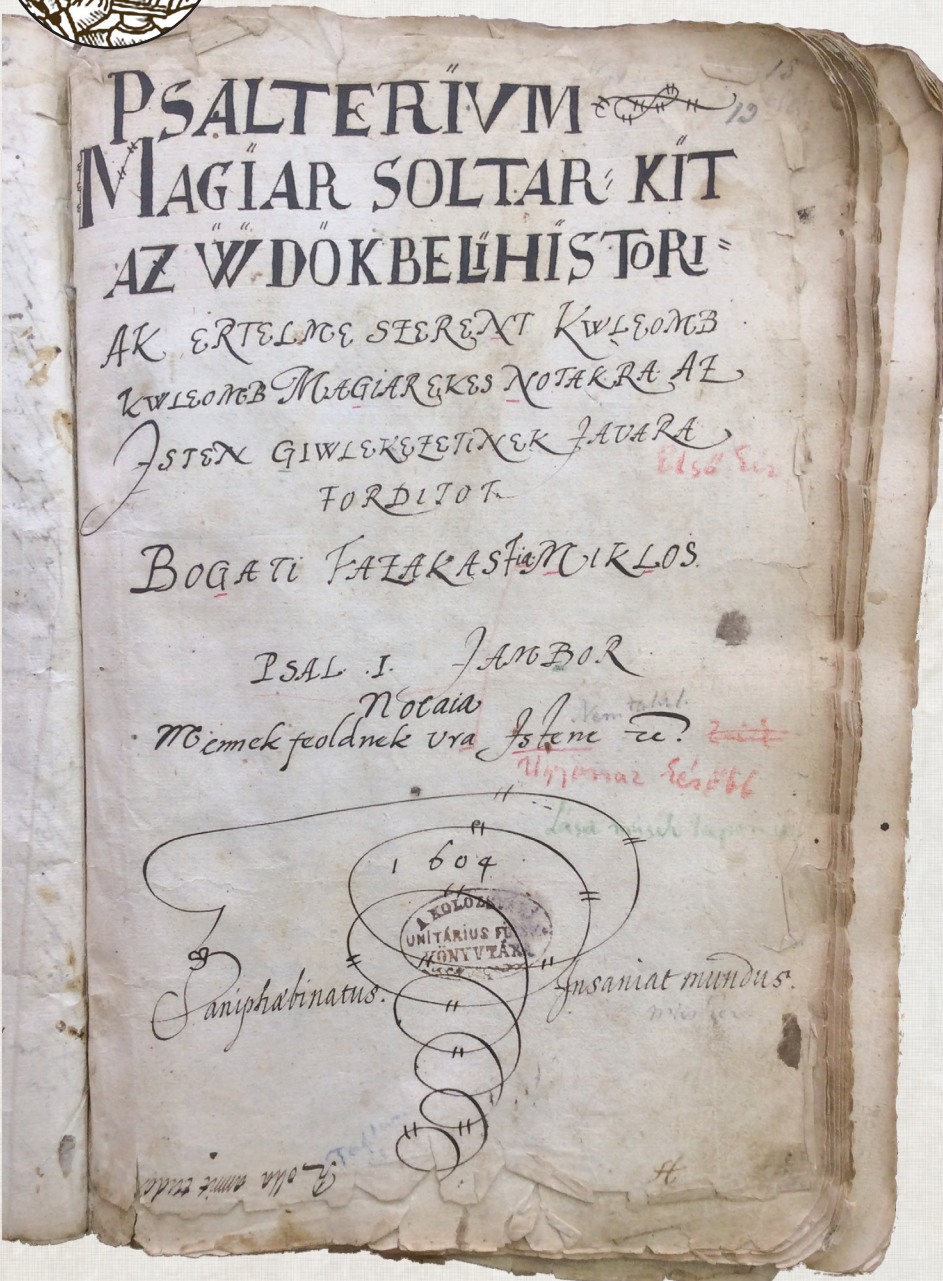 PSALTERIVM
19
MAGIAR SOLTAR: KIT
AZ ẄDÖKBELI HISTORI=
AK ERTELME SZERENT KWLEOMB
KWLEOMB MAGIAR EKES NOTAKRA AZ
ISTEN GIWLEKEZETINEK JAVARA
Első kéz
FORDITOT
BOGATI FAZAKAS fia MIKLOS.
PSAL. .I. JAMBOR
Notaia
Mennek feoldnek Vra Istene
Ugyanaz később
Lásd másik lapon
1604
A KOLOZSVÁRI
UNITÁRIUS
KÖNYVTÁR
Saniphæbinatus. Insaniat mundus.